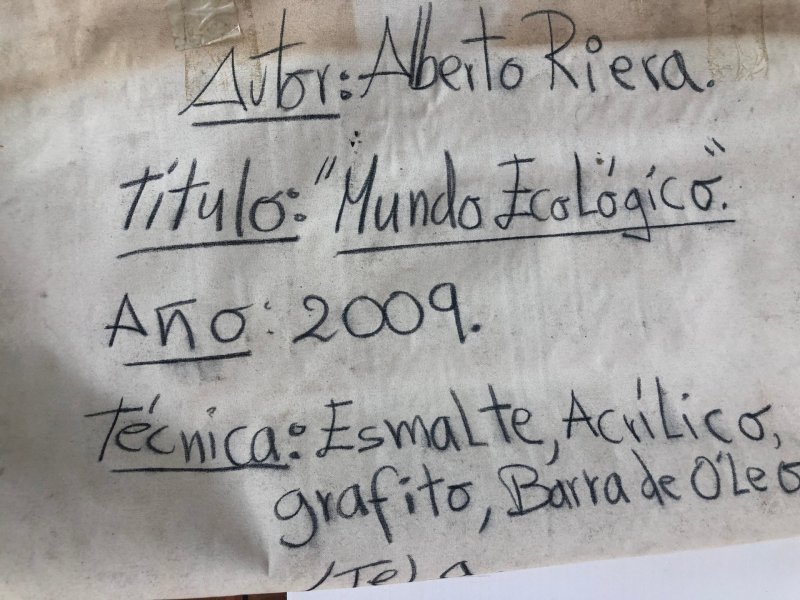 Autor: Alberto Riera.
Título: "Mundo Ecológico."
Año: 2009.
Técnica: Esmalte, Acrílico,
grafito, Barra de Óleo
/Tela